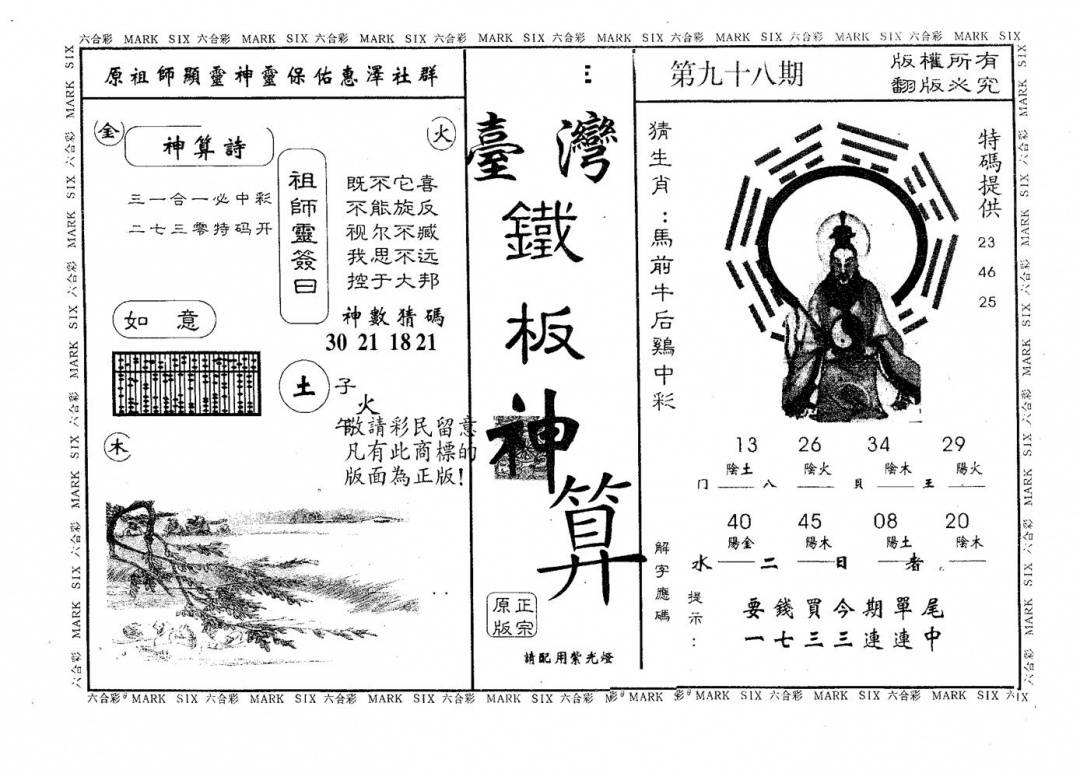 六合彩 MARK SIX 六合彩 MARK SIX 六合彩 MARK SIX 六合彩 MARK SIX 六合彩 MARK SIX 六合彩 MARK SIX 六合彩 MARK SIX 六合彩 MARK SIX
原祖師顯靈神靈保佑惠澤社群
金
神算詩
三一合一必中彩
二七三零特码开
火
祖師靈簽曰
既不它喜
不能旋反
视尔不臧
我思不远
控于大邦
神數猜碼
30 21 18 21
如意
土
子
火
午
木
敬請彩民留意
凡有此商標的
版面為正版!
臺灣
鐵
板
神
算
正宗
原版
請配用紫光燈
第九十八期
版權所有
翻版必究
猜生肖:馬前牛后鷄中彩
特碼提供
23
46
25
13 26 34 29
陰土 陰火 陰木 陽火
门 八 貝 王
40 45 08 20
陽金 陽木 陽土 陰木
水 二 日 者
解字應碼
提示:
要錢買今期單尾
一七三三連連中
六合彩 MARK SIX 六合彩 MARK SIX 六合彩 MARK SIX 六合彩 MARK SIX 六合彩 MARK SIX 六合彩 MARK SIX 六合彩 MARK SIX